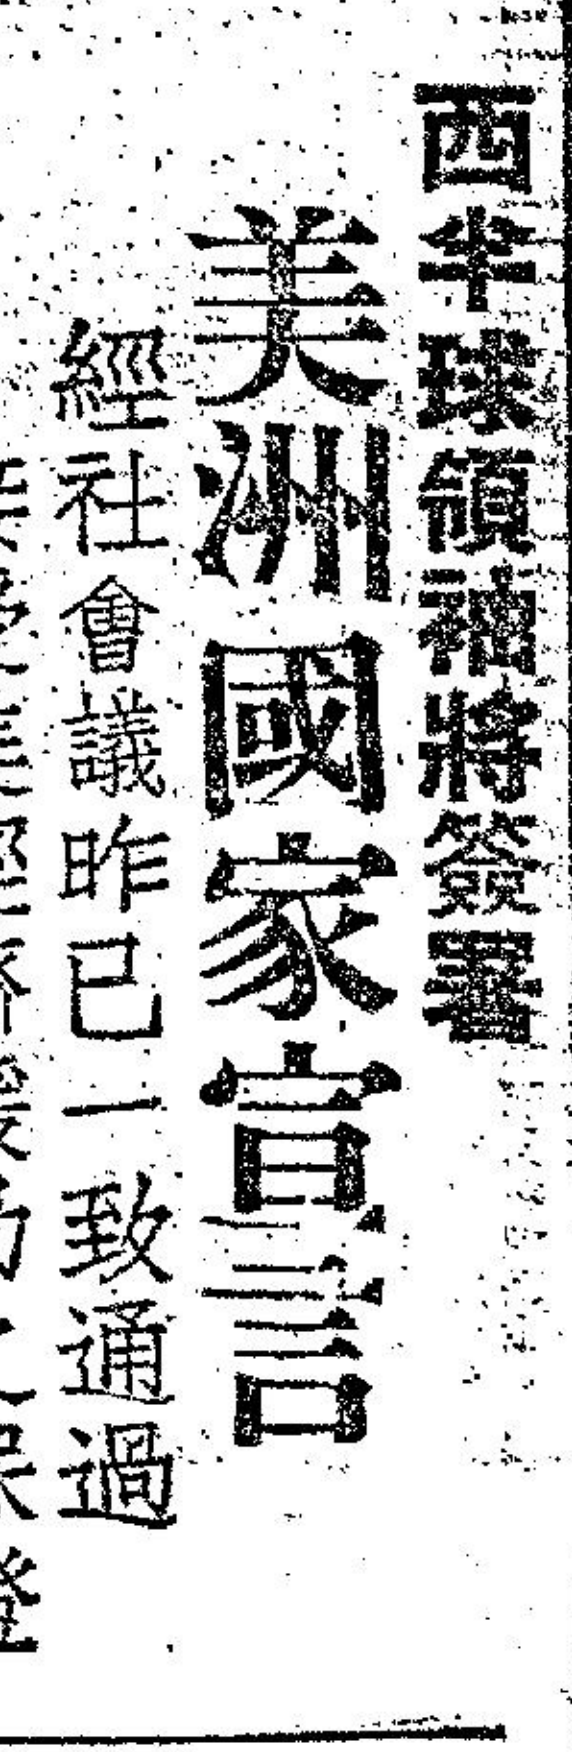 西半球領袖將簽署
美洲國家宣言
經社會議昨已一致通過